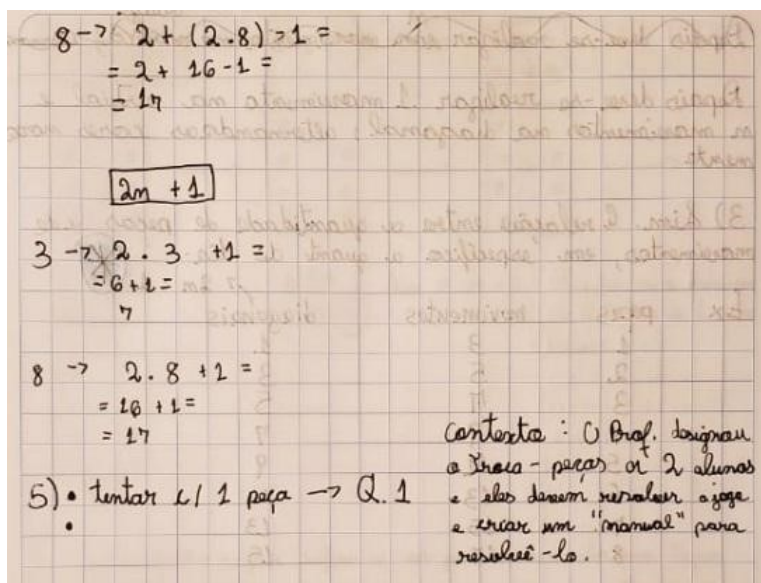 8 -> 2 + (2.8) - 1 =
= 2 + 16 - 1 =
= 17
2n + 1
3 -> 2 . 3 + 1 =
= 6 + 1 =
7
8 -> 2 . 8 + 1 =
= 16 + 1 =
= 17
5) • tentar c/ 1 peça -> Q. 1
•
Contexto : O Prof. designou
o Troca - peças a 2 alunos
e eles devem resolver o jogo
e criar um "manual" para
resolvê-lo.